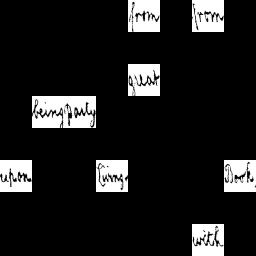 from from
great
being Party
upon Living. Book,
with